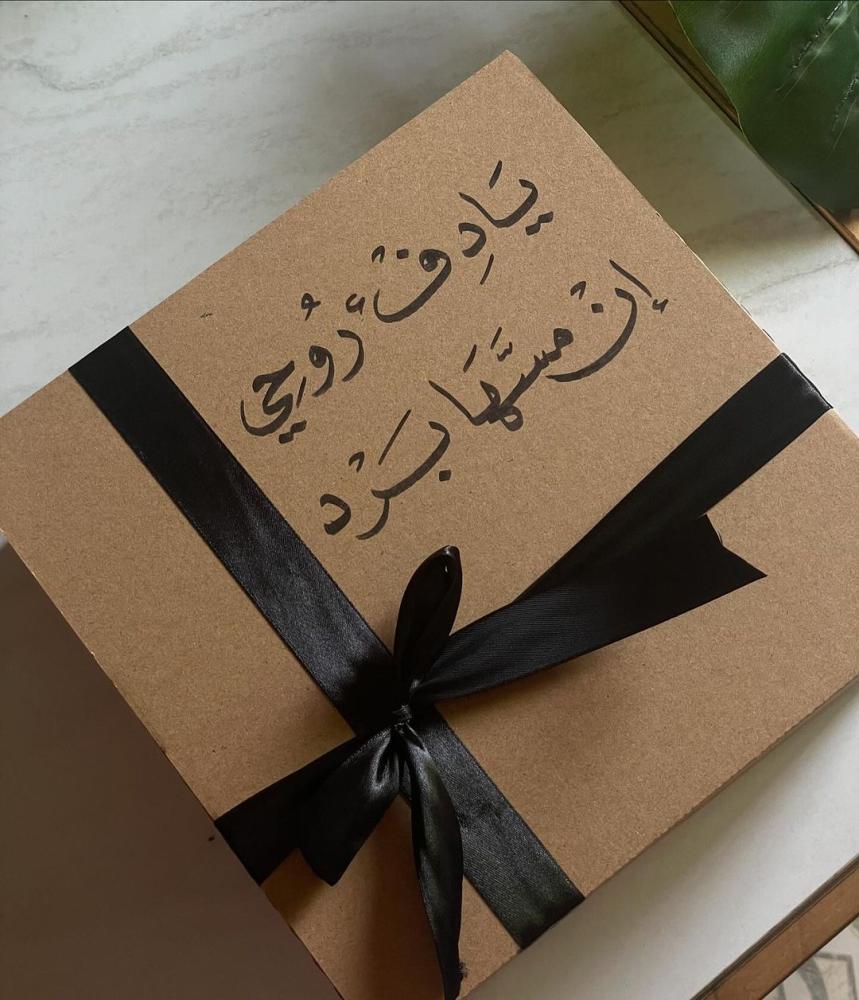 يَا دِفْءَ رُوحِي
إنْ مسَّهَا بَرْد